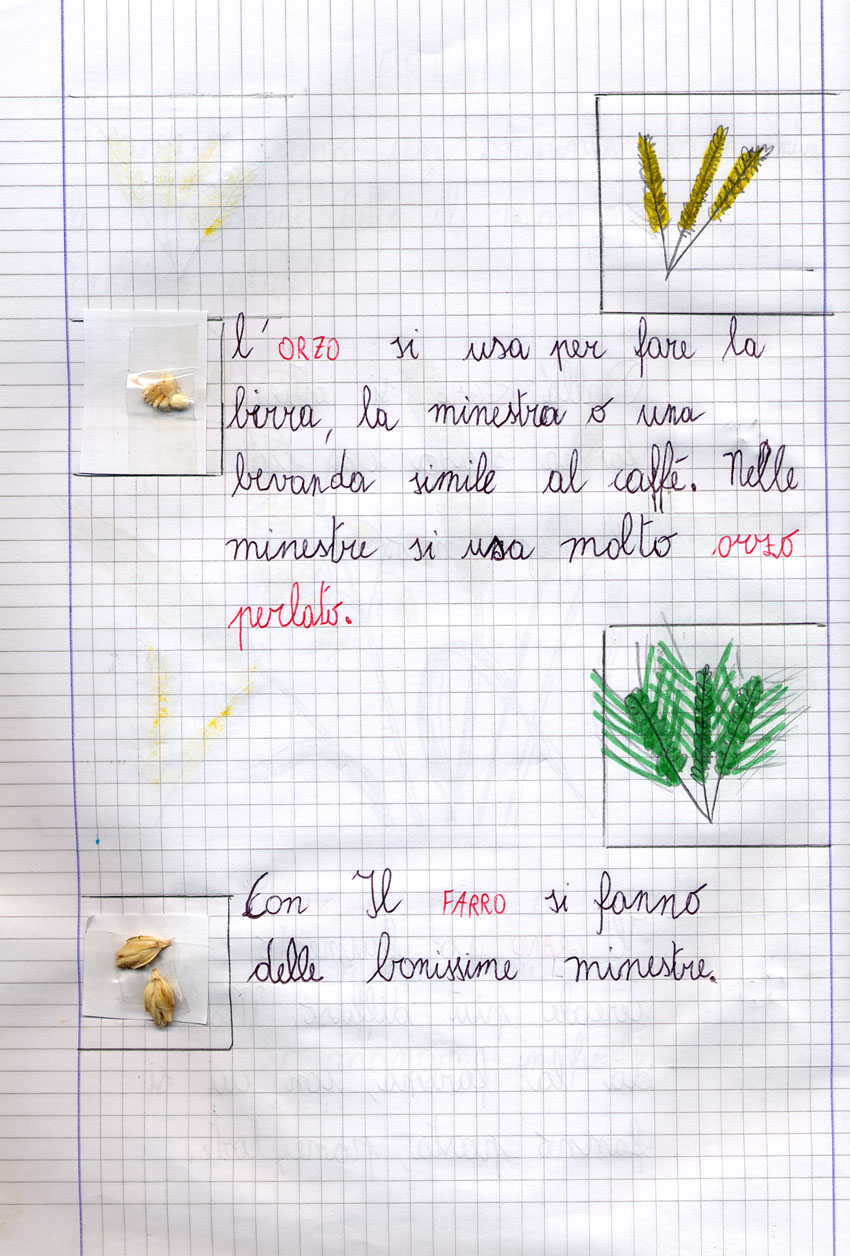 l'ORZO si usa per fare la
birra, la minestra o una
bevanda simile al caffé. Nelle
minestre si usa molto orzo
perlato.
Con Il FARRO si fanno
delle bonissime minestre.